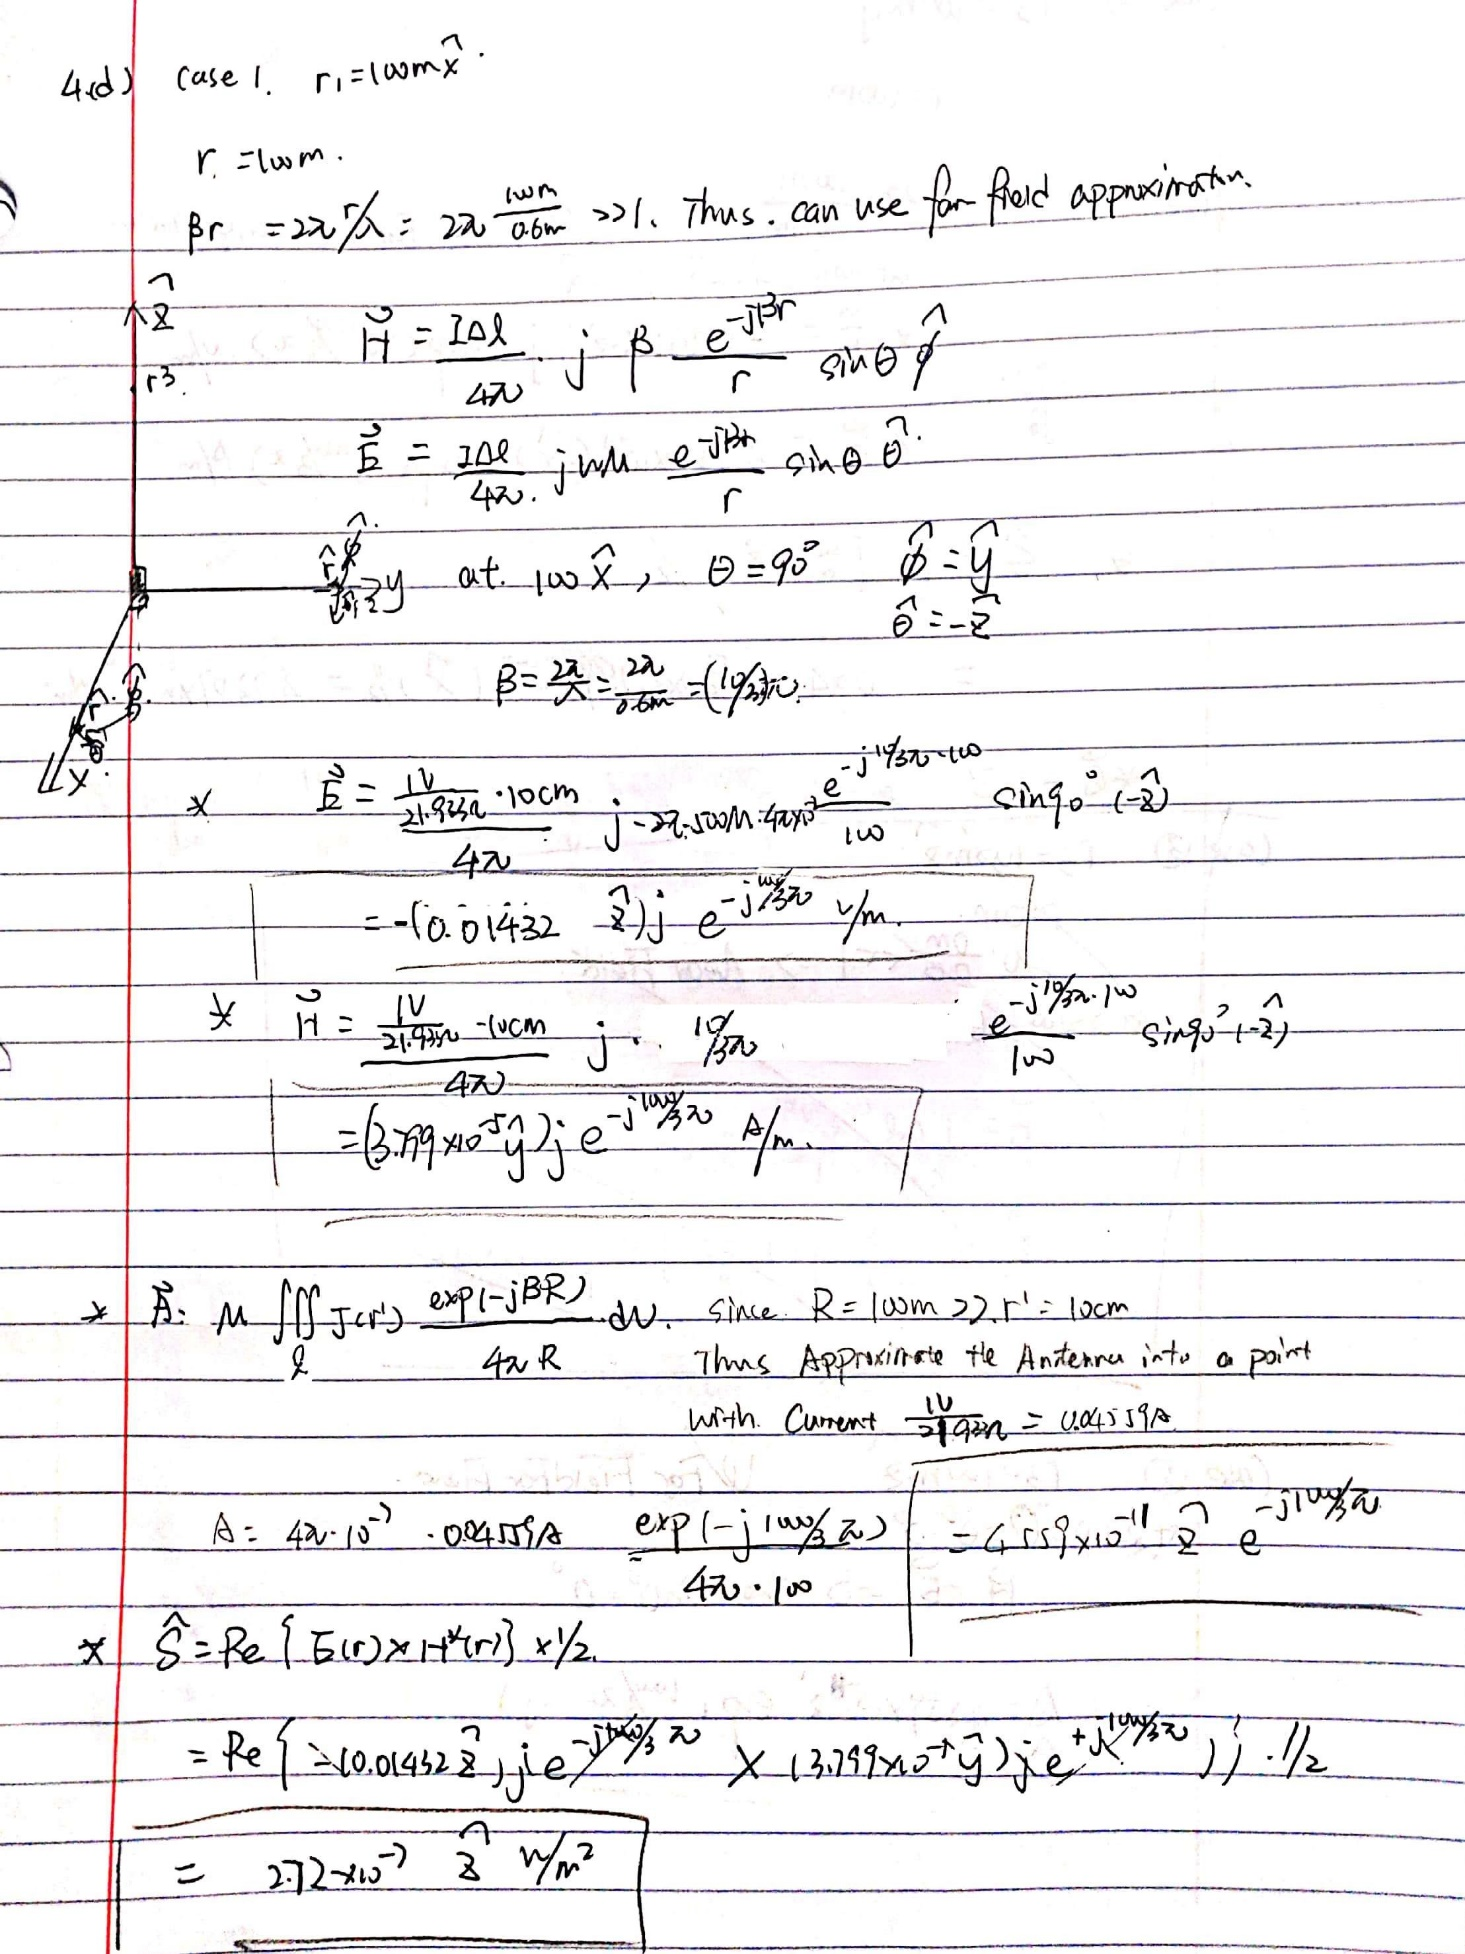 4.(d) Case 1. r₁=100m x̂.
r. =100m.
βr = 2π r/λ = 2π 100m/0.6m >>1. Thus. can use far field approximation.
ẑ
r3.
H⃗ = IΔl/4π · j β e^{-jβr}/r sinθ φ̂
E⃗ = IΔl/4π. jωμ e^{-jβr}/r sinθ θ̂.
r̂ φ̂. y at. 100 x̂, θ=90° φ̂=ŷ
θ̂=-ẑ
β= 2π/λ = 2π/0.6m =(10/3)π.
r̂. φ̂.
θ̂
x.
* E⃗ = (1V/21.933Ω ·10cm)/4π j-2π·500M·4π×10⁻⁷ e^{-j10/3π·100}/100 sin90° (-ẑ)
=-(0.01432 ẑ)j e^{-j1000/3π} V/m.
* H⃗ = (1V/21.93Ω -10cm)/4π j·. 10/3π e^{-j10/3π·100}/100 sin90° (-ẑ)
=(3.799×10⁻⁵ŷ)j e^{-j1000/3π} A/m.
* A⃗: μ ∭ J(r') exp(-jβR)/4πR dV. since. R=100m >>.r'=10cm
l
Thus Approximate the Antenna into a point
with. Current 1V/21.93Ω = 0.04559A.
A= 4π·10⁻⁷ ·0.04559A exp(-j1000/3 π)/4π·100 =4.559×10⁻¹¹ ẑ e^{-j1000/3π}
* Ŝ=Re{E(r)×H*(r)}×1/2.
= Re{-(0.01432ẑ)je^{-j1000/3π} × (3.799×10⁻⁵ŷ)je^{+j1000/3π})}·1/2
= 2.72×10⁻⁷ ẑ W/m²